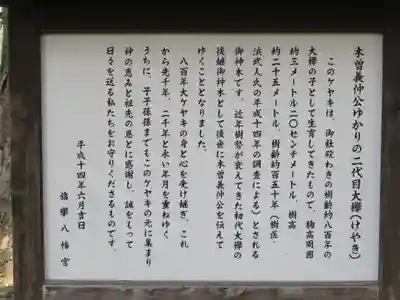 木曽義仲公ゆかりの二代目大欅(けやき)
このケヤキは、御社殿わきの樹齢約八百年の
大欅の子として生育してきたもので、胸高周囲
約三メートル二〇センチメートル、樹高
約二十五メートル、樹齢約百五十年(樹医、
浜武人氏の平成十四年の調査による)とされる
御神木です。近年樹勢が衰えてきた初代大欅の
後継御神木として後世に木曽義仲公を伝えて
ゆくこととなりました。
八百年大ケヤキの身と心を受け継ぎ、これ
から先千年、二千年と永い年月を重ねゆく
うちに、子子孫孫までもこのケヤキの元に集まり
神の恵みと祖先の恩とに感謝し、誠をもって
日々を送る私たちをお守りくださるものです。
平成十四年六月吉日
旗挙八幡宮